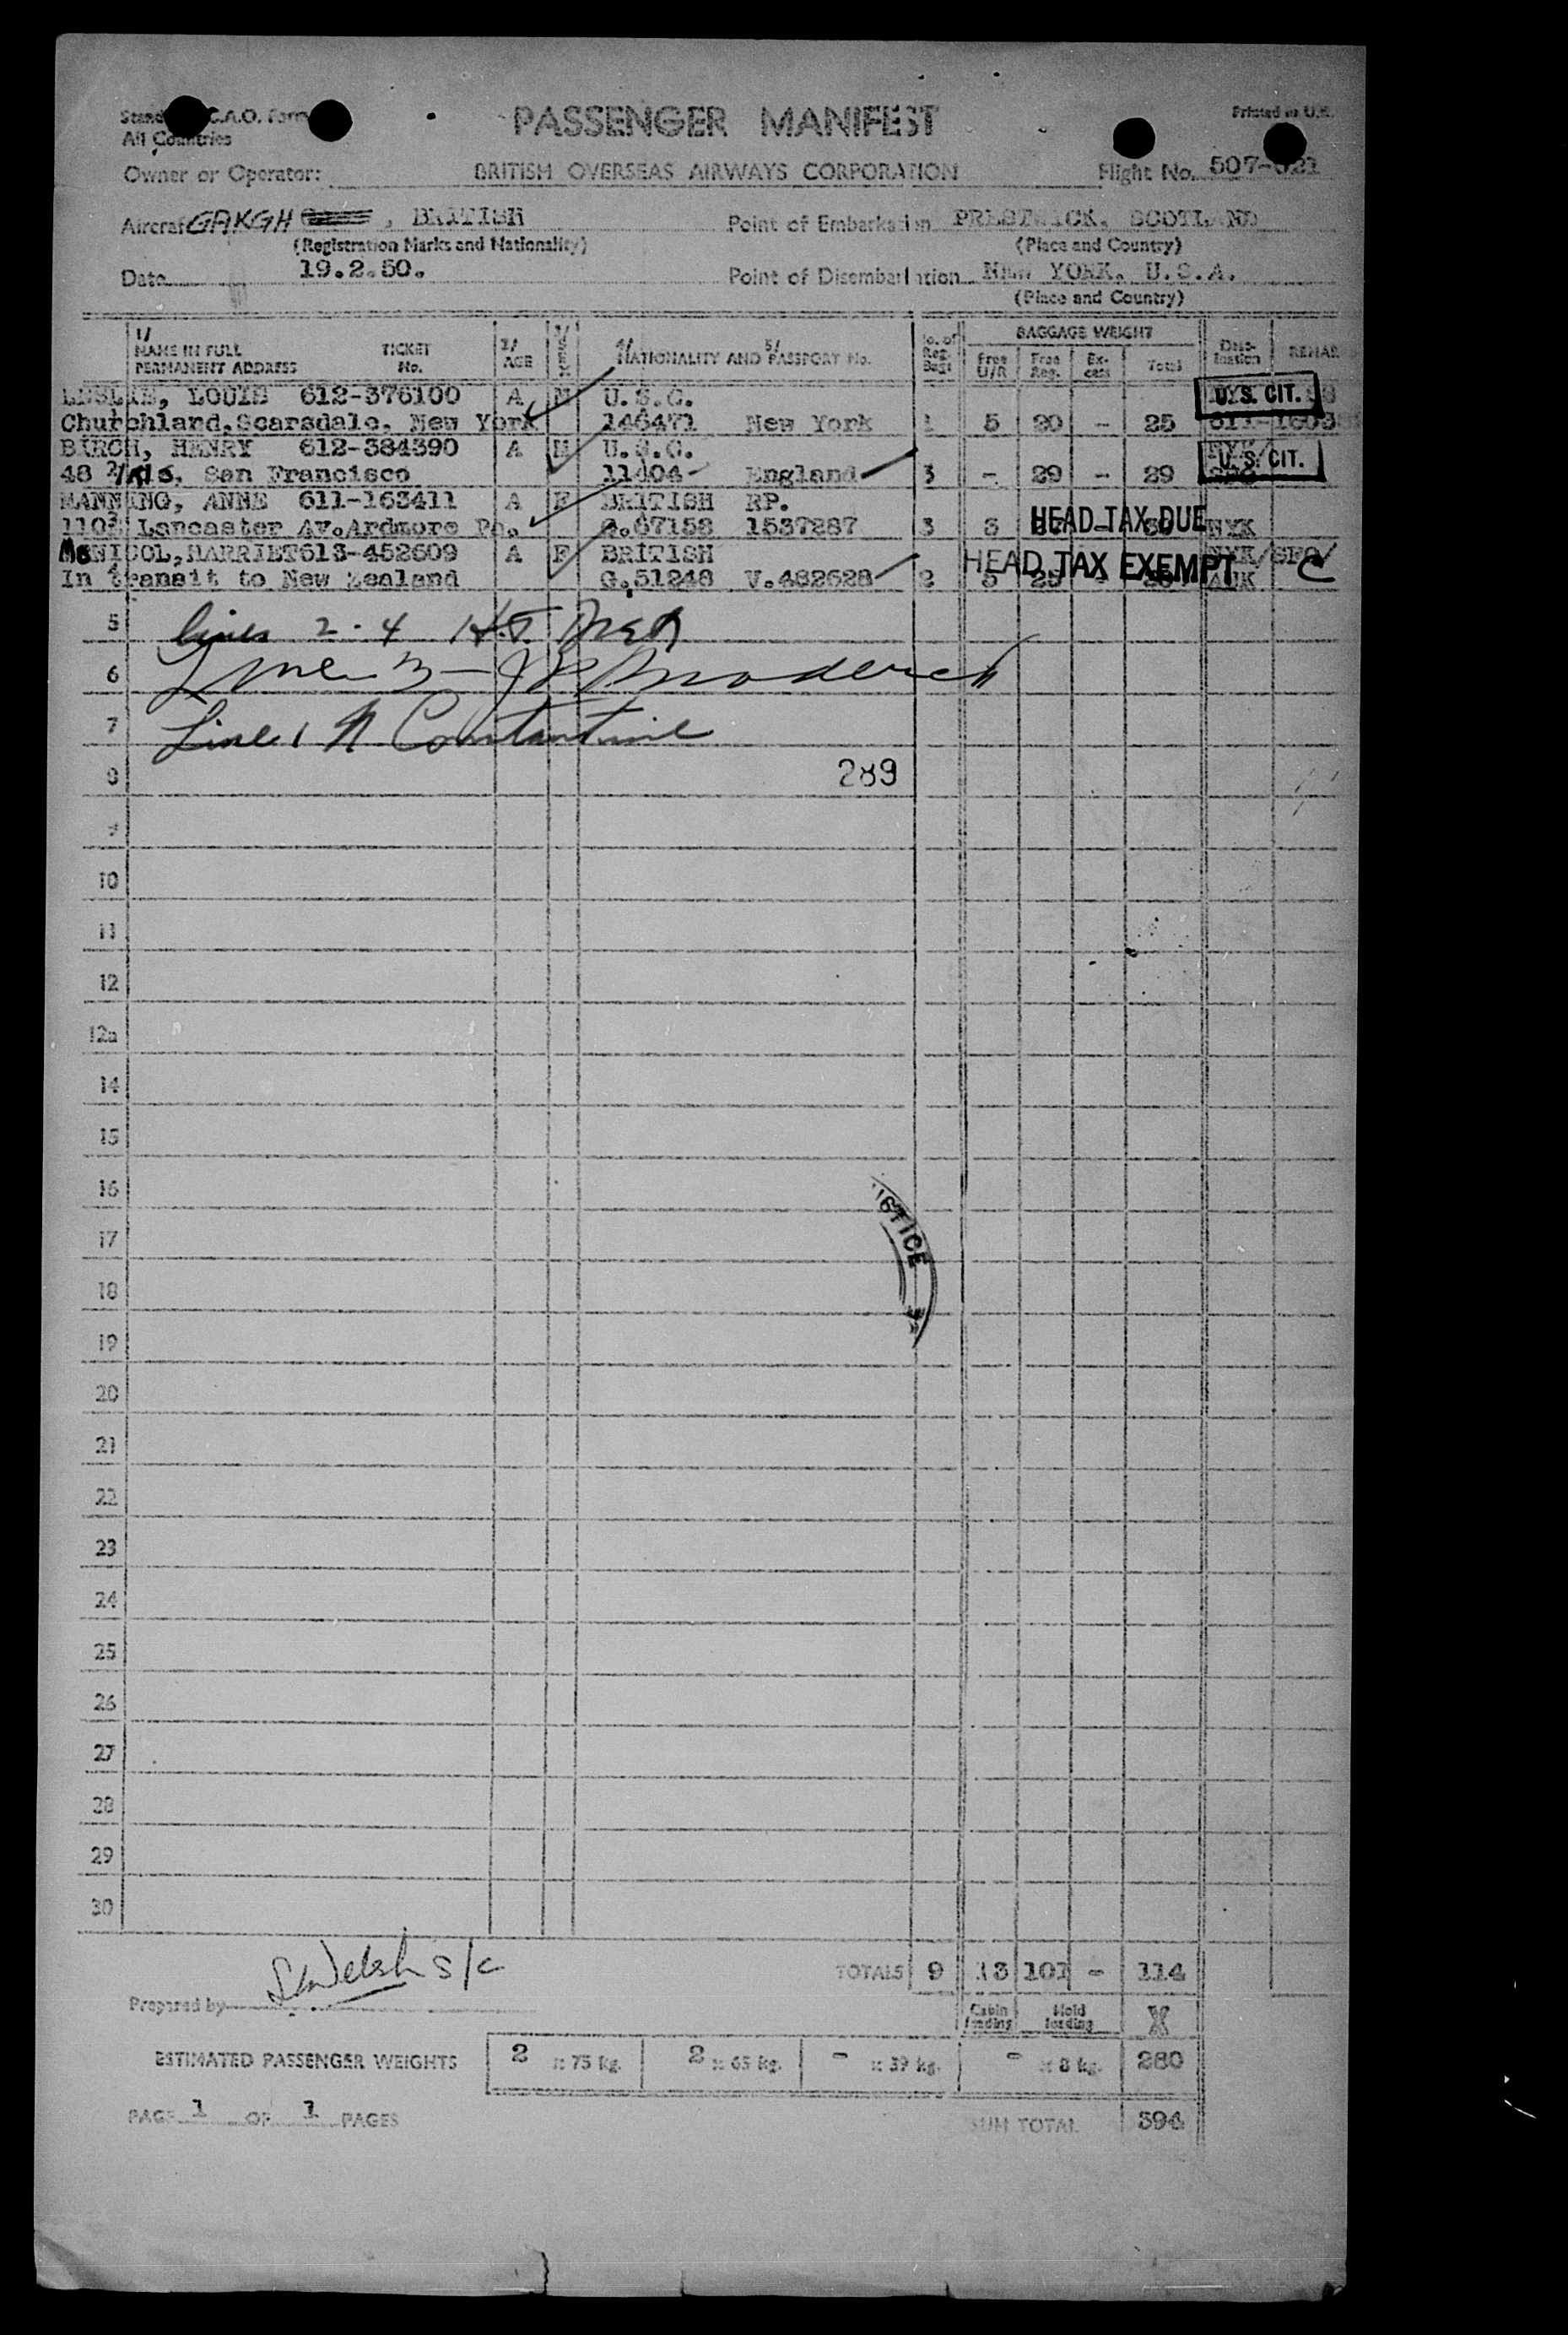 C.A.O. Form
All Countries
PASSENGER MANIFEST
Printed in U.K.
Owner or Operator: BRITISH OVERSEAS AIRWAYS CORPORATION Flight No. 507-
Aircraft GAKGH , BRITISH Point of Embarkation PRESTWICK, SCOTLAND
(Registration Marks and Nationality) (Place and Country)
Date 19.2.50. Point of Disembarkation NEW YORK, U.S.A.
(Place and Country)
1/ NAME IN FULL PERMANENT ADDRESS TICKET No. 2/ AGE 3/ SEX 4/ NATIONALITY AND 5/ PASSPORT No. No. of Reg. Bags BAGGAGE WEIGHT Free U/R Free Reg. Ex-cess Total Dest-ination REMAR
LESLIE, LOUIS 612-376100 A M U.S.C. U.S. CIT.
Churchland, Scarsdale, New York 146471 New York 1 5 20 - 25
BIRCH, HENRY 612-384390 A M U.S.C. NYK/
48 San Francisco 11404 England 3 - 29 - 29 U.S. CIT.
MANNING, ANNE 611-163411 A F BRITISH RP.
Lancaster Av. Ardmore Pa. 1537287 3 HEAD TAX DUE NYK
McNICOL, HARRIET 613-452609 A F BRITISH HEAD TAX EXEMPT NYK/SFO/
In transit to New Zealand G.51248 V.482628 2 5 AUK
5 lines 2-4 H.T.
6 Line 3 - Broderick
7 Line 1 N Constantine
8 289
9
10
11
12
12a
14
15
16
USTICE
17
18
19
20
21
22
23
24
25
26
27
28
29
30
TOTALS 9 13 101 - 114
Prepared by Welsh s/c
Cabin loading Hold loading X
ESTIMATED PASSENGER WEIGHTS 2 x 75 kg. 2 x 65 kg. - x 39 kg. - x 8 kg. 280
PAGE 1 OF 1 PAGES SUM TOTAL 394